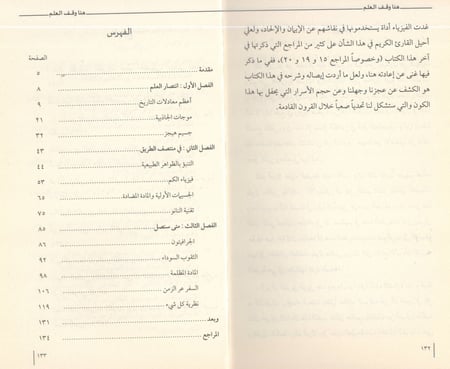 هنا وقف العلم
غدت الفيزياء أداة يستخدمونها في نقاشهم عن الإيمان والإلحاد، ولعلي
أحيل القارئ الكريم في هذا الشأن على كثير من المراجع التي ذكرتها في
آخر هذا الكتاب (وخصوصاً المراجع ١٥ و ١٩ و ٢٠)، ففي ما ذكر
فيها غنى عن إعادته هنا، ولعل ما أردت إيصاله وشرحه في هذا الكتاب
هو الكشف عن عجزنا وجهلنا وعن حجم الأسرار التي يحفل بها هذا
الكون والتي ستشكل لنا تحدياً صعباً خلال القرون القادمة.
١٣٢
هنا وقف العلم
الفهرس
الصفحة
مقدمة ... ٥
الفصل الأول: انتصار العلم ... ٨
أعظم معادلات التاريخ ... ٩
موجات الجاذبية ... ٢١
جسيم هيجز ... ٣٢
الفصل الثاني: في منتصف الطريق ... ٤٣
التنبؤ بالظواهر الطبيعية ... ٤٤
فيزياء الكم ... ٥٣
الجسيمات الأولية والمادة المضادة ... ٦٥
تقنية النانو ... ٧٥
الفصل الثالث: متى سنصل ... ٨٥
الجرافيتون ... ٨٦
الثقوب السوداء ... ٩٢
المادة المظلمة ... ٩٨
السفر عبر الزمن ... ١٠٦
نظرية كل شيء ... ١١٩
وبعد ... ١٣١
المراجع ... ١٣٤
١٣٣